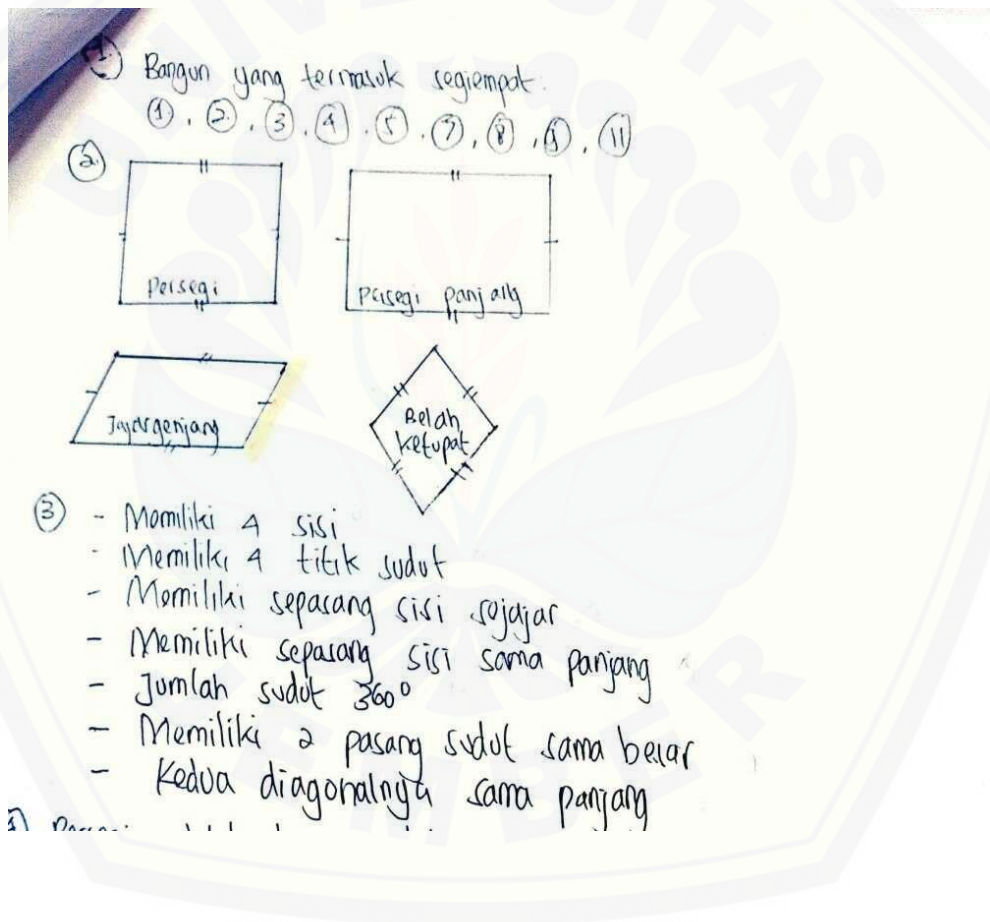 1. Bangun yang termasuk segiempat.
1, 2, 3, 4, 5, 7, 8, 9, 11
2
Persegi
persegi panjang
Jajargenjang
Belah
ketupat
3 - Memiliki 4 sisi
- Memiliki 4 titik sudut
- Memiliki sepasang sisi sejajar
- Memiliki sepasang sisi sama panjang
- Jumlah sudut 360°
- Memiliki 2 pasang sudut sama besar
- Kedua diagonalnya sama panjang
UNIVERSITAS
JEMBER